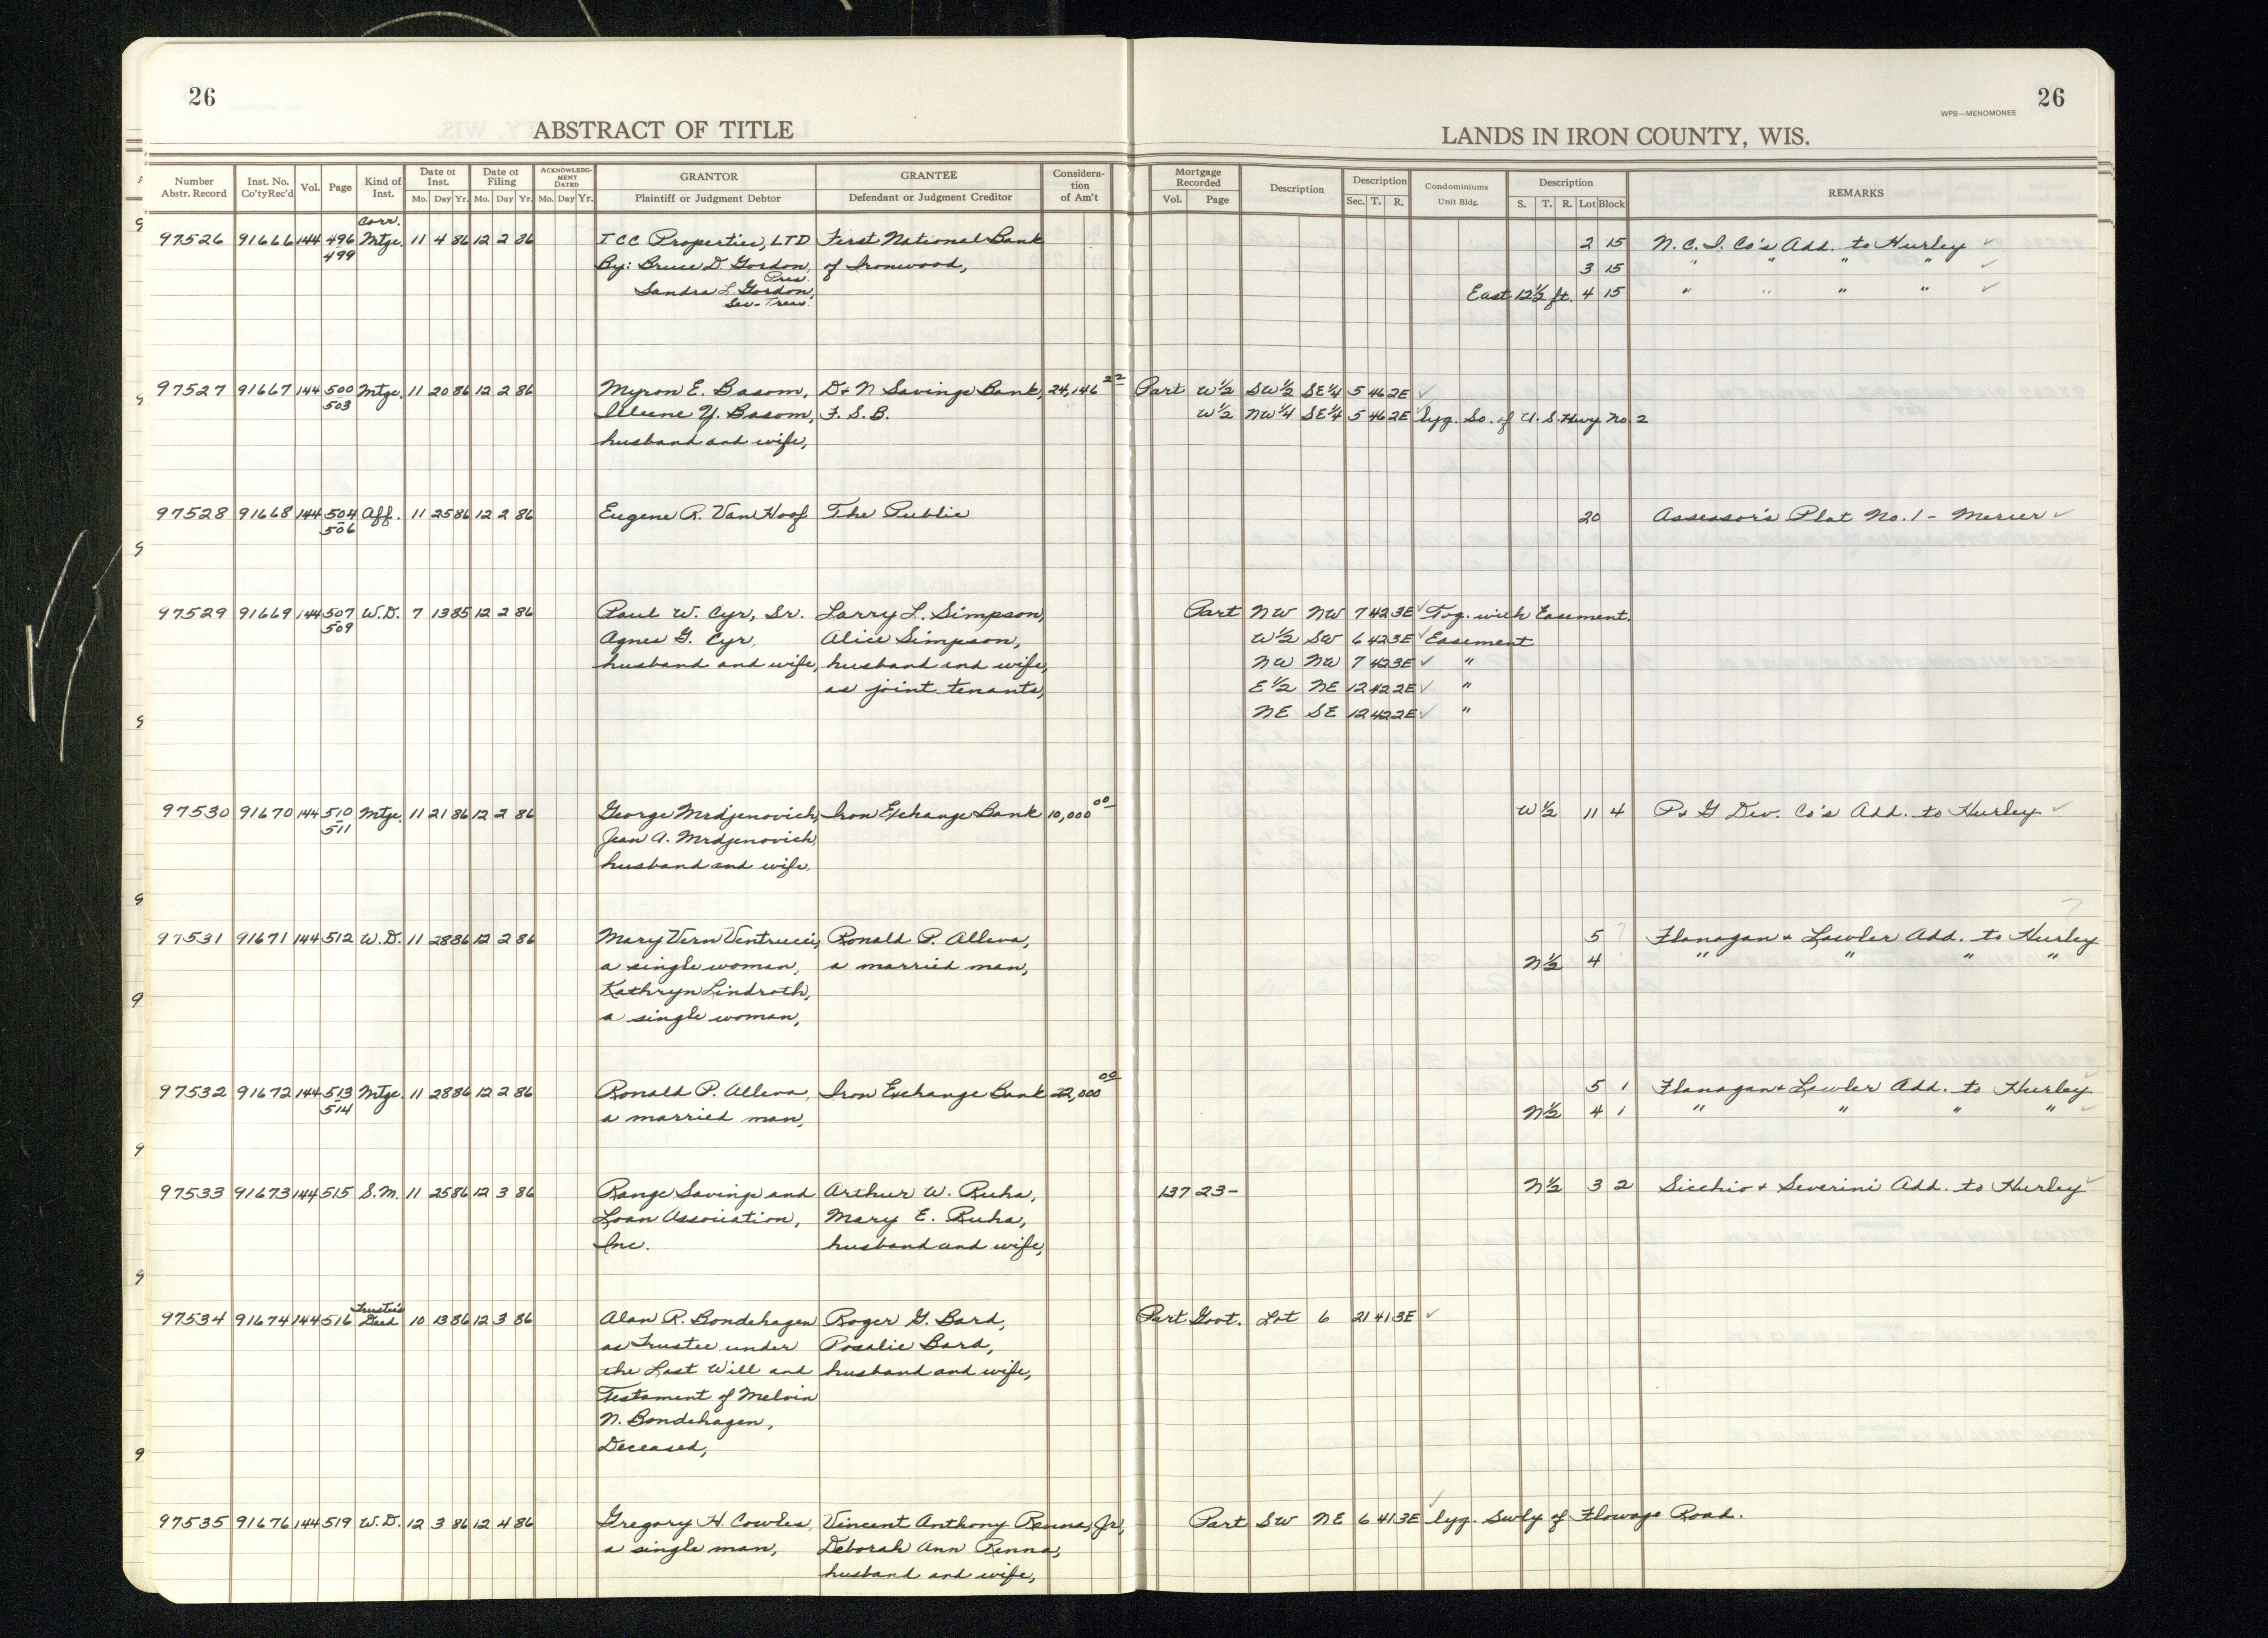 26
ABSTRACT OF TITLE
Number Abstr. Record
Inst. No. Co'ty Rec'd
Vol.
Page
Kind of Inst.
Date of Inst.
Mo. Day Yr.
Date of Filing
Mo. Day Yr.
ACKNOWLEDGMENT DATED
Mo. Day Yr.
GRANTOR
Plaintiff or Judgment Debtor
GRANTEE
Defendant or Judgment Creditor
Consideration of Am't
26
WPB—MENOMONEE
LANDS IN IRON COUNTY, WIS.
Mortgage Recorded
Vol. Page
Description
Description
Sec. T. R.
Condominiums
Unit Bldg.
Description
S. T. R. Lot Block
REMARKS
Corr.
97526 91666 144 496 Mtge. 11 4 86 12 2 86 ICC Properties, LTD First National Bank 2 15 N. C. I. Co's Add. to Hurley ✓
499 By: Bruce D. Gordon, of Ironwood, 3 15 " " " " ✓
Pres.
Sandra L. Gordon, East 12½ ft. 4 15 " " " " ✓
Sec-Treas.
97527 91667 144 500 Mtge. 11 20 86 12 2 86 Myron E. Basom, D+N Savings Bank, 24,146 22 Part W½ SW½ SE¼ 5 46 2E ✓
503 Y. Basom, F. S. B. W½ NW¼ SE¼ 5 46 2E ✓ lyg. So. of U. S. Hwy No. 2
husband and wife,
97528 91668 144 504 Aff. 11 25 86 12 2 86 Eugene R. Van Hoof The Public 20 Assessor's Plat No. 1 - Mercer ✓
506
97529 91669 144 507 W.D. 7 13 85 12 2 86 Paul W. Cyr, Sr. Larry L. Simpson, Part NW NW 7 42 3E ✓ Tog. with Easement.
509 Agnes G. Cyr, Alice Simpson, W½ SW 6 42 3E ✓ Easement
husband and wife, husband and wife, NW NW 7 42 3E ✓ "
as joint tenants, E½ NE 12 42 2E ✓ "
NE SE 12 42 2E ✓ "
97530 91670 144 510 Mtge. 11 21 86 12 2 86 George Mrdjenovich, Iron Exchange Bank 10,000 00 W½ 11 4 P+G Dev. Co's Add. to Hurley ✓
511 Jean A. Mrdjenovich,
husband and wife,
97531 91671 144 512 W.D. 11 28 86 12 2 86 Mary Vern Ventrucci, Ronald P. Alleva, 5 ? Flanagan + Lawler Add. to Hurley
a single woman, a married man, N½ 4 " " " "
Kathryn Lindroth,
a single woman,
97532 91672 144 513 Mtge. 11 28 86 12 2 86 Ronald P. Alleva, Iron Exchange Bank 22,000 00 5 1 Flanagan + Lawler Add. to Hurley ✓
514 a married man, N½ 4 1 " " " " ✓
97533 91673 144 515 S.M. 11 25 86 12 3 86 Range Savings and Arthur W. Ruha, 137 23- N½ 3 2 Sicchio + Severini Add. to Hurley ✓
Loan Association, Mary E. Ruha,
Inc. husband and wife,
Trustee's
97534 91674 144 516 Deed 10 13 86 12 3 86 Alan R. Bondehagen Roger G. Bard, Part Govt. Lot 6 21 41 3E ✓
as Trustee under Rosalie Bard,
the Last Will and husband and wife,
Testament of Melvin
N. Bondehagen,
Deceased,
97535 91676 144 519 W.D. 12 3 86 12 4 86 Gregory H. Cowles, Vincent Anthony Renna, Jr., Part SW NE 6 41 3E ✓ lyg. Swly of Flowage Road.
a single man, Deborah Ann Renna,
husband and wife,